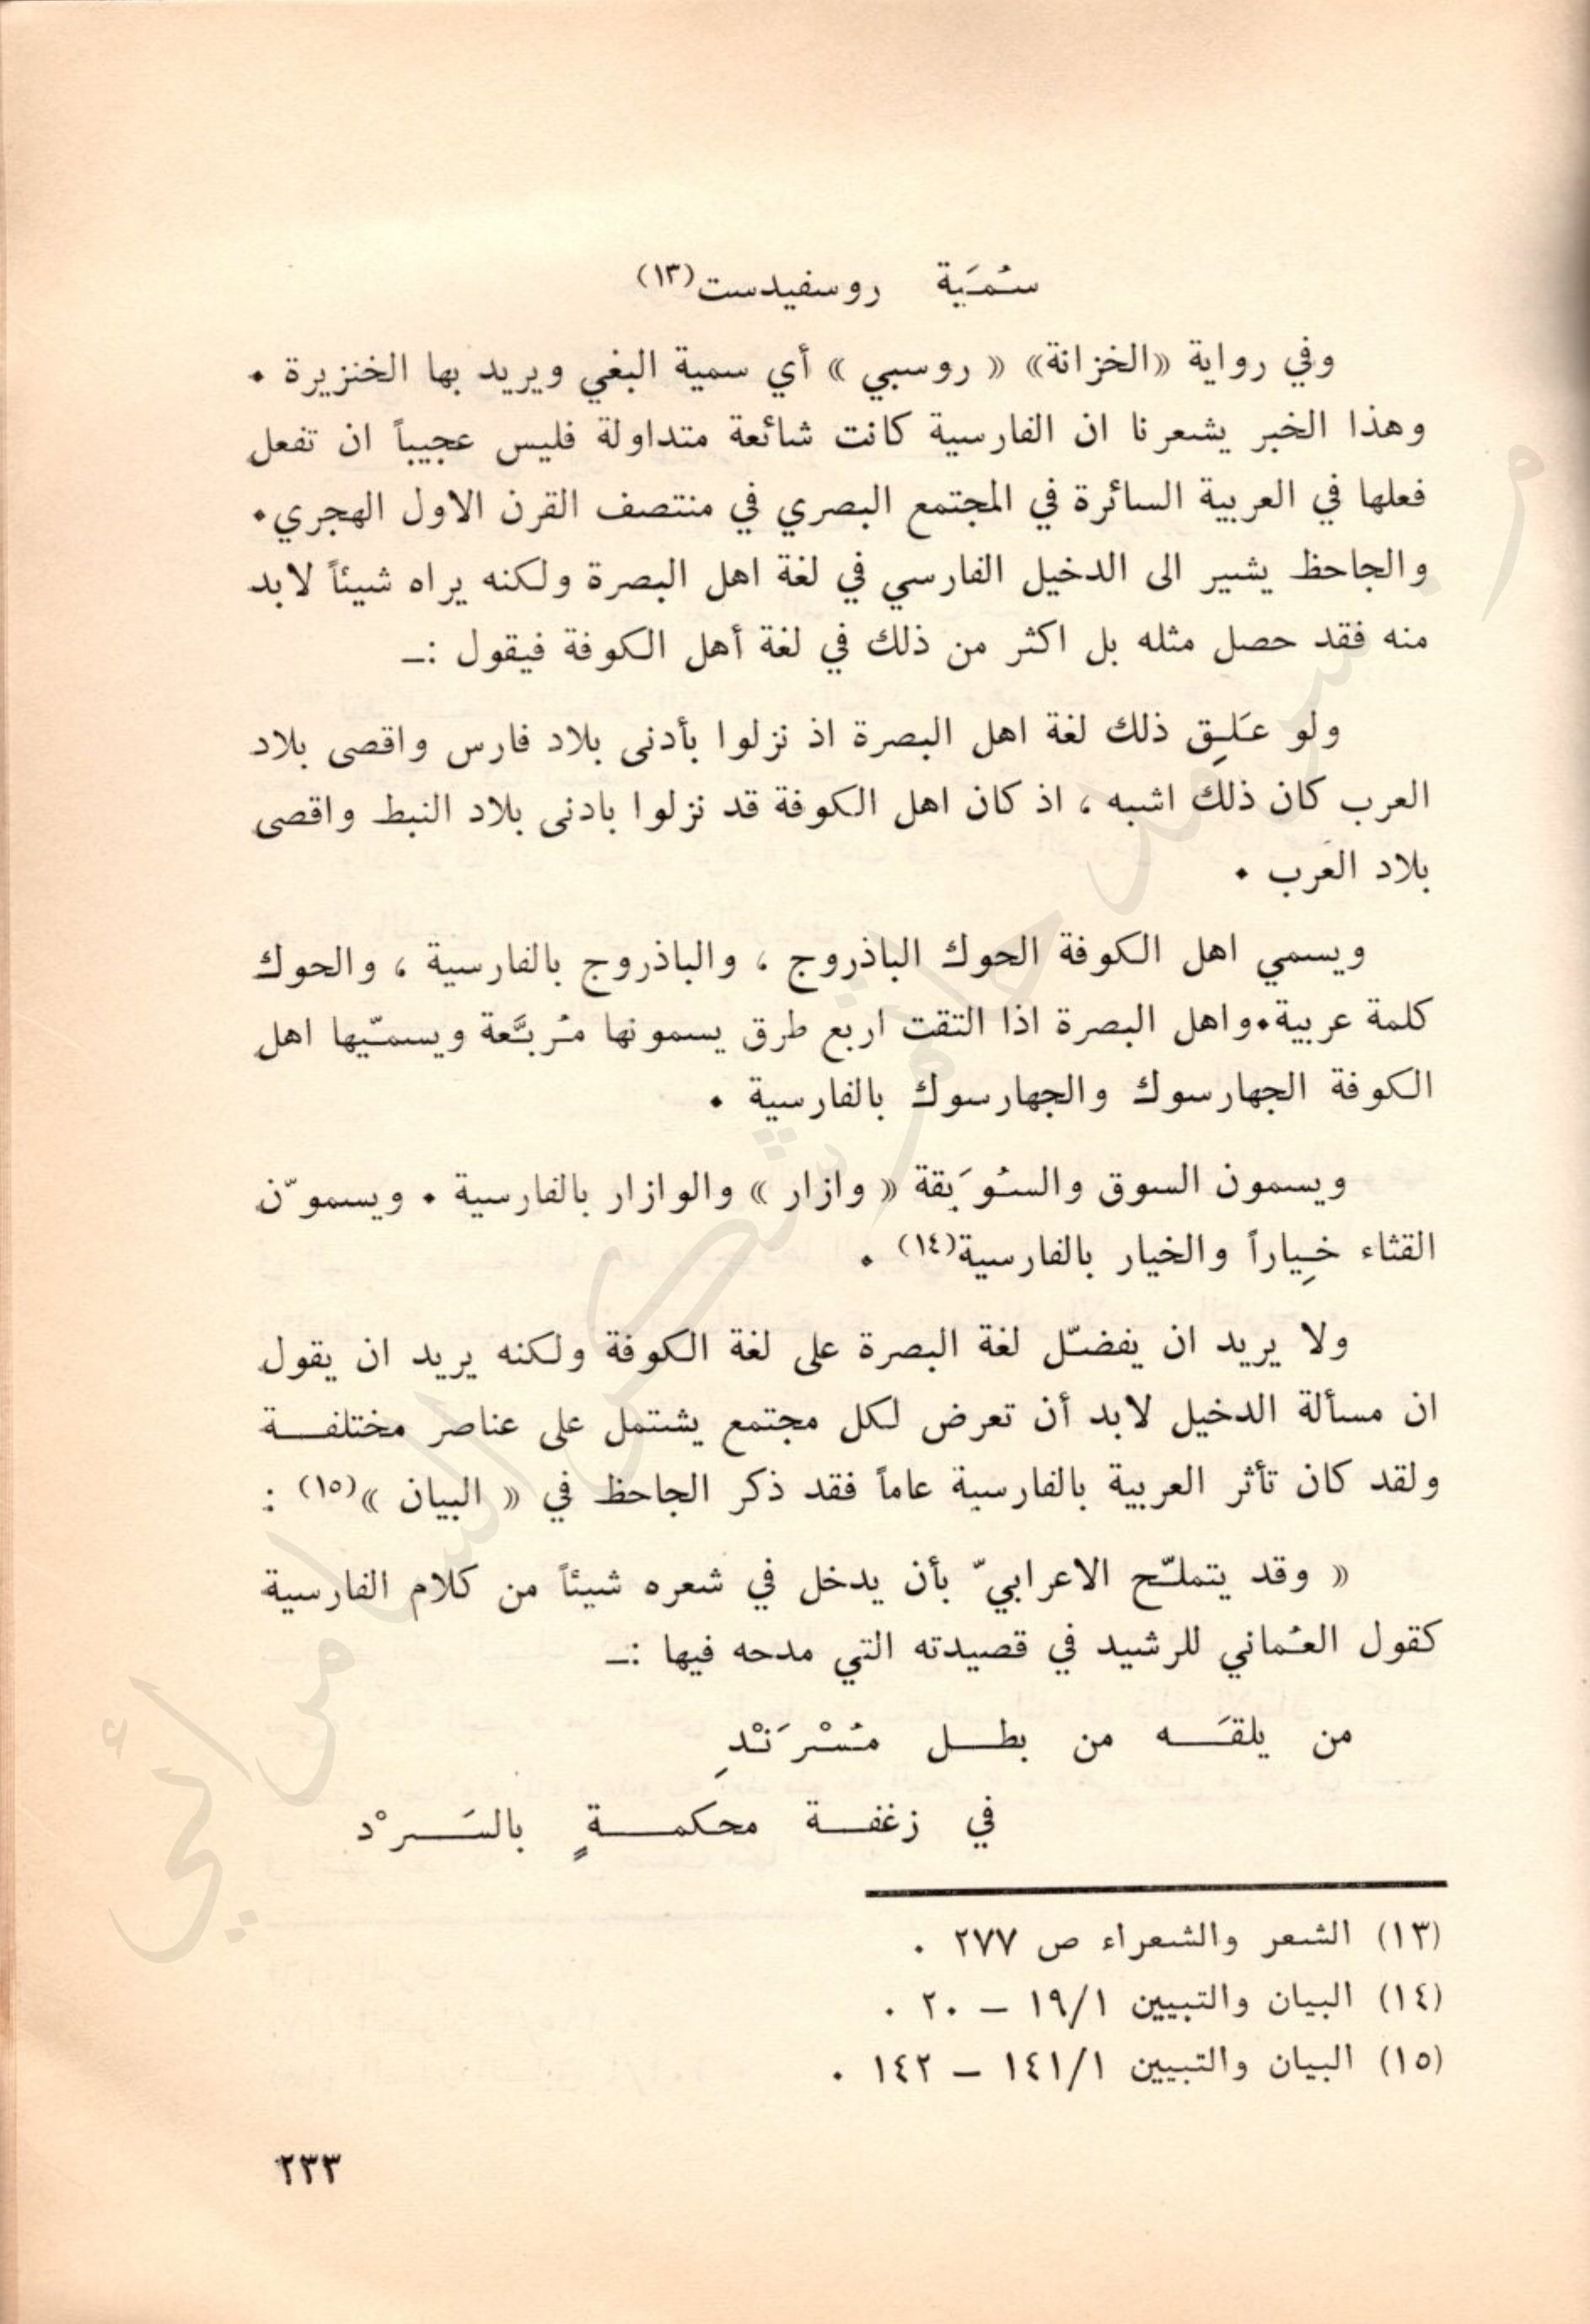 سُمَية روسفيدست(١٣)
وفي رواية «الخزانة» « روسبي » أي سمية البغي ويريد بها الخنزيرة ٠
وهذا الخبر يشعرنا ان الفارسية كانت شائعة متداولة فليس عجيباً ان تفعل
فعلها في العربية السائرة في المجتمع البصري في منتصف القرن الاول الهجري٠
والجاحظ يشير الى الدخيل الفارسي في لغة اهل البصرة ولكنه يراه شيئاً لابد
منه فقد حصل مثله بل اكثر من ذلك في لغة أهل الكوفة فيقول :ـ
ولو عَلِق ذلك لغة اهل البصرة اذ نزلوا بأدنى بلاد فارس واقصى بلاد
العرب كان ذلك اشبه ، اذ كان اهل الكوفة قد نزلوا بادنى بلاد النبط واقصى
بلاد العرب ٠
ويسمي اهل الكوفة الحوك الباذروج ، والباذروج بالفارسية ، والحوك
كلمة عربية٠واهل البصرة اذا التقت اربع طرق يسمونها مُربَّعة ويسمّيها اهل
الكوفة الجهارسوك والجهارسوك بالفارسية ٠
ويسمون السوق والسُوَيقة « وازار » والوازار بالفارسية ٠ ويسموّن
القثاء خِياراً والخيار بالفارسية(١٤) ٠
ولا يريد ان يفضّل لغة البصرة على لغة الكوفة ولكنه يريد ان يقول
ان مسألة الدخيل لابد أن تعرض لكل مجتمع يشتمل على عناصر مختلفـــة
ولقد كان تأثر العربية بالفارسية عاماً فقد ذكر الجاحظ في « البيان »(١٥) :
« وقد يتملّح الاعرابيّ بأن يدخل في شعره شيئاً من كلام الفارسية
كقول العُماني للرشيد في قصيدته التي مدحه فيها :ـ
من يلقَـــه من بطـــل مُسْرَنْدِ
في زغفـــة محكمـــةٍ بالسَـــرْد
(١٣) الشعر والشعراء ص ٢٧٧ ٠
(١٤) البيان والتبيين ١٩/١ – ٢٠ ٠
(١٥) البيان والتبيين ١٤١/١ – ١٤٢ ٠
٢٣٣